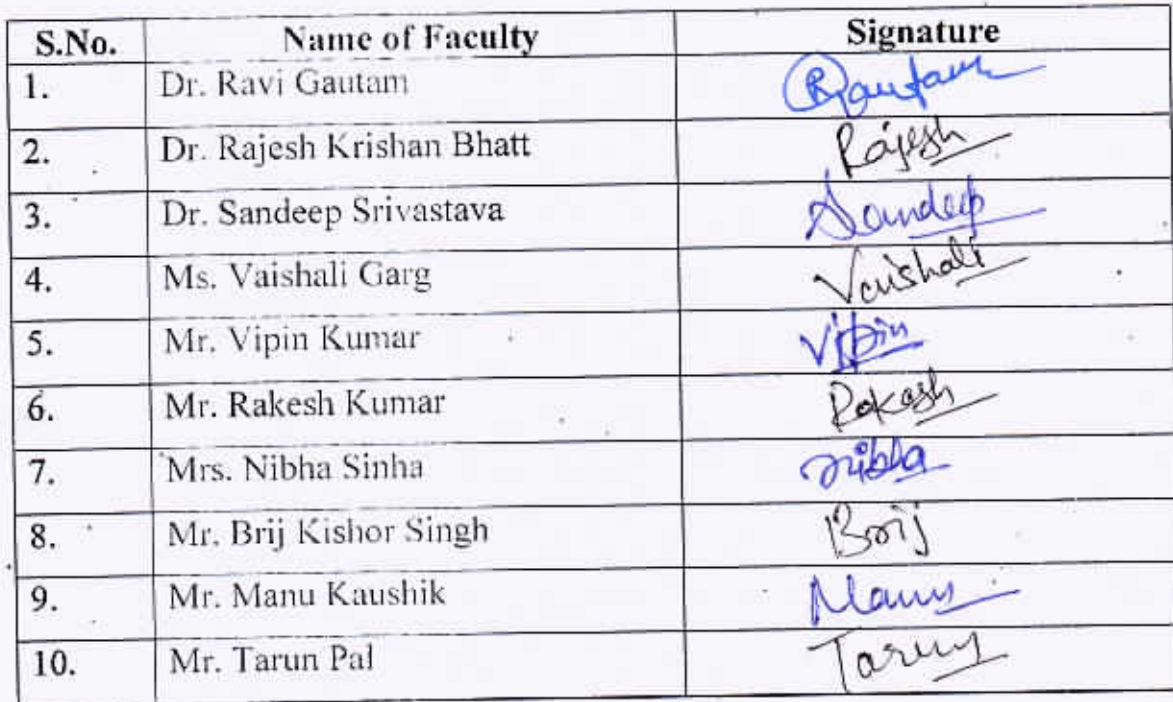 S.No. Name of Faculty Signature
1. Dr. Ravi Gautam RGautam
2. Dr. Rajesh Krishan Bhatt Rajesh
3. Dr. Sandeep Srivastava Sandeep
4. Ms. Vaishali Garg Vaishali
5. Mr. Vipin Kumar Vipin
6. Mr. Rakesh Kumar Rakesh
7. Mrs. Nibha Sinha nibha
8. Mr. Brij Kishor Singh Brij
9. Mr. Manu Kaushik Manu
10. Mr. Tarun Pal Tarun